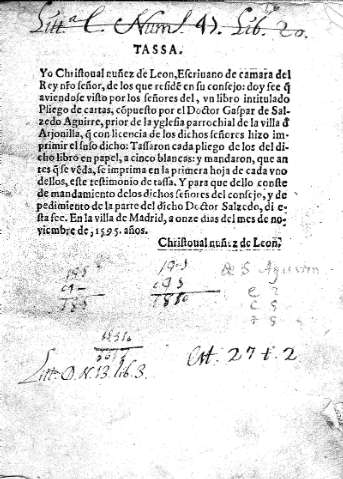 Litt.ª C. Num. 47. Lib. 20.
TASSA.
Yo Christoual nuñez de Leon, Escriuano de camara del
Rey nr̃o señor, de los que residẽ en su consejo: doy fee q̃
auiendose visto por los señores del, vn libro intitulado
Pliego de cartas, cõpuesto por el Doctor Gaspar de Sal-
zedo Aguirre, prior de la yglesia parrochial de la villa đ
Arjonilla, q̃ con licencia de los dichos señores hizo im-
primir el suso dicho: Tassaron cada pliego de los del di-
cho libro en papel, a cinco blancas: y mandaron, que an-
tes q̃ se vẽda, se imprima en la primera hoja de cada vno
dellos, este testimonio de tassa. Y para que dello conste
de mandamiento delos dichos señores del consejo, y de
pedimiento de la parte del dicho Doctor Salzedo, di e-
sta fee. En la villa de Madrid, a onze dias del mes de no-
uiembre de, 1595. años.
Christoual nuñez de Leon,
de S Agustin
Litt.ª D. N. 13 lib. 3.
Est. 27 t. 2